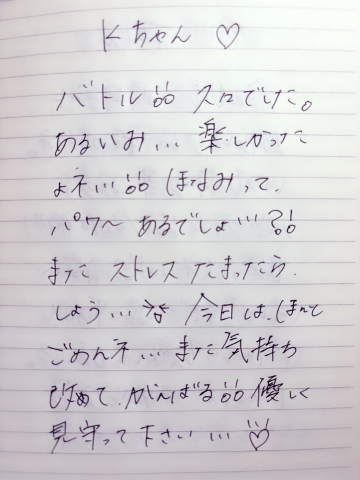 Kちゃん ♡
バトル!! スロでした。
あるいみ... 楽しかった
よネ...!! ほなみって、
パワ〜 あるでしょ...?!!
また ストレス たまったら、
しよう... 今日は、ほんと
ごめんネ... また気持ち
改めて、がんばる!! 優しく
見守って下さい...♡